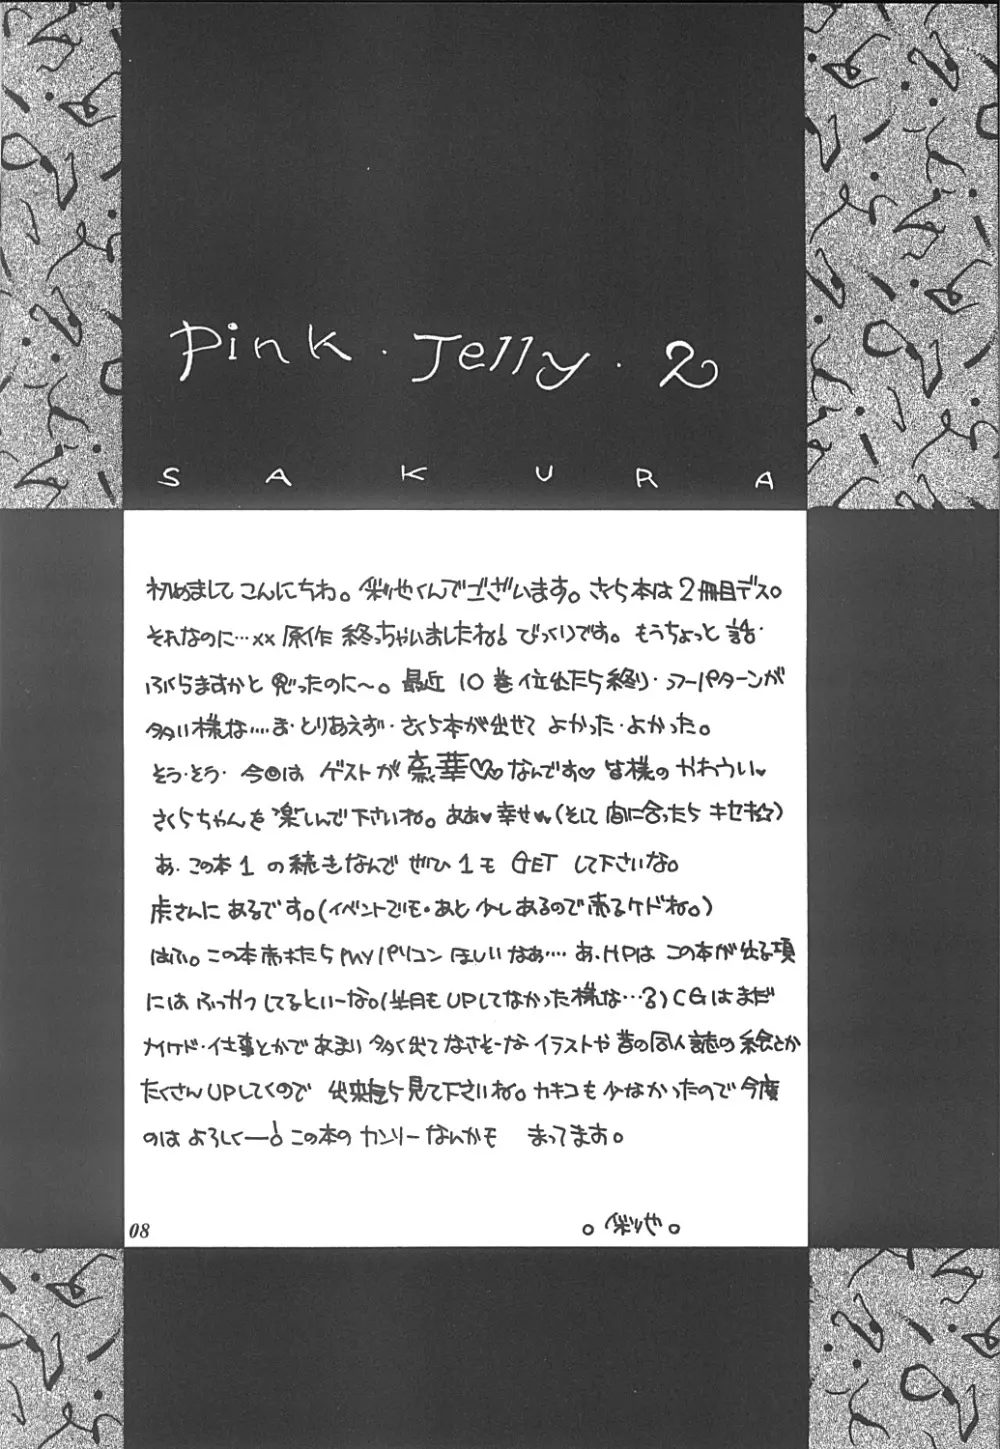 Pink・Jelly・2
SAKURA
初めましてこんにちわ。くんでございます。さくら本は2冊目デス。
それなのに…xx 原作 終っちゃいましたね! びっくりです。もうちょっと 話・
ふくらますかと 思ったのに〜。最近 10巻位出たら終り・フーパターンが
多い様な…・ま・とりあえず・さくら本が出せて よかった・よかった。
そう・そう・今回は ゲストが 豪華♡なんです♡ 皆様の かわうい♥
さくらちゃんを 楽しんで下さいね。ああ♥幸せ♥(そして 間に合ったら キセキ☆)
あ・この本1 の続きなんで ぜひ 1も GET して下さいな。
虎さんに あるです。(イベントでも・あと 少しあるので売るケドね。)
はふ。この本売れたら My パソコン ほしいなあ…・あ、HPは この本が 出る頃
には ふっかつ してるといーな。(半月も UPしてなかった様な…3) CGはまだ
ナイケド・仕事とかであまり 多く出て なさそーな イラストや 昔の同人誌の 絵とか
たくさんUPしてくので 出来たら見て下さいね。カキコも 少なかったので今度
のは よろしくー! この本の カンソーなんかも まってます。
08